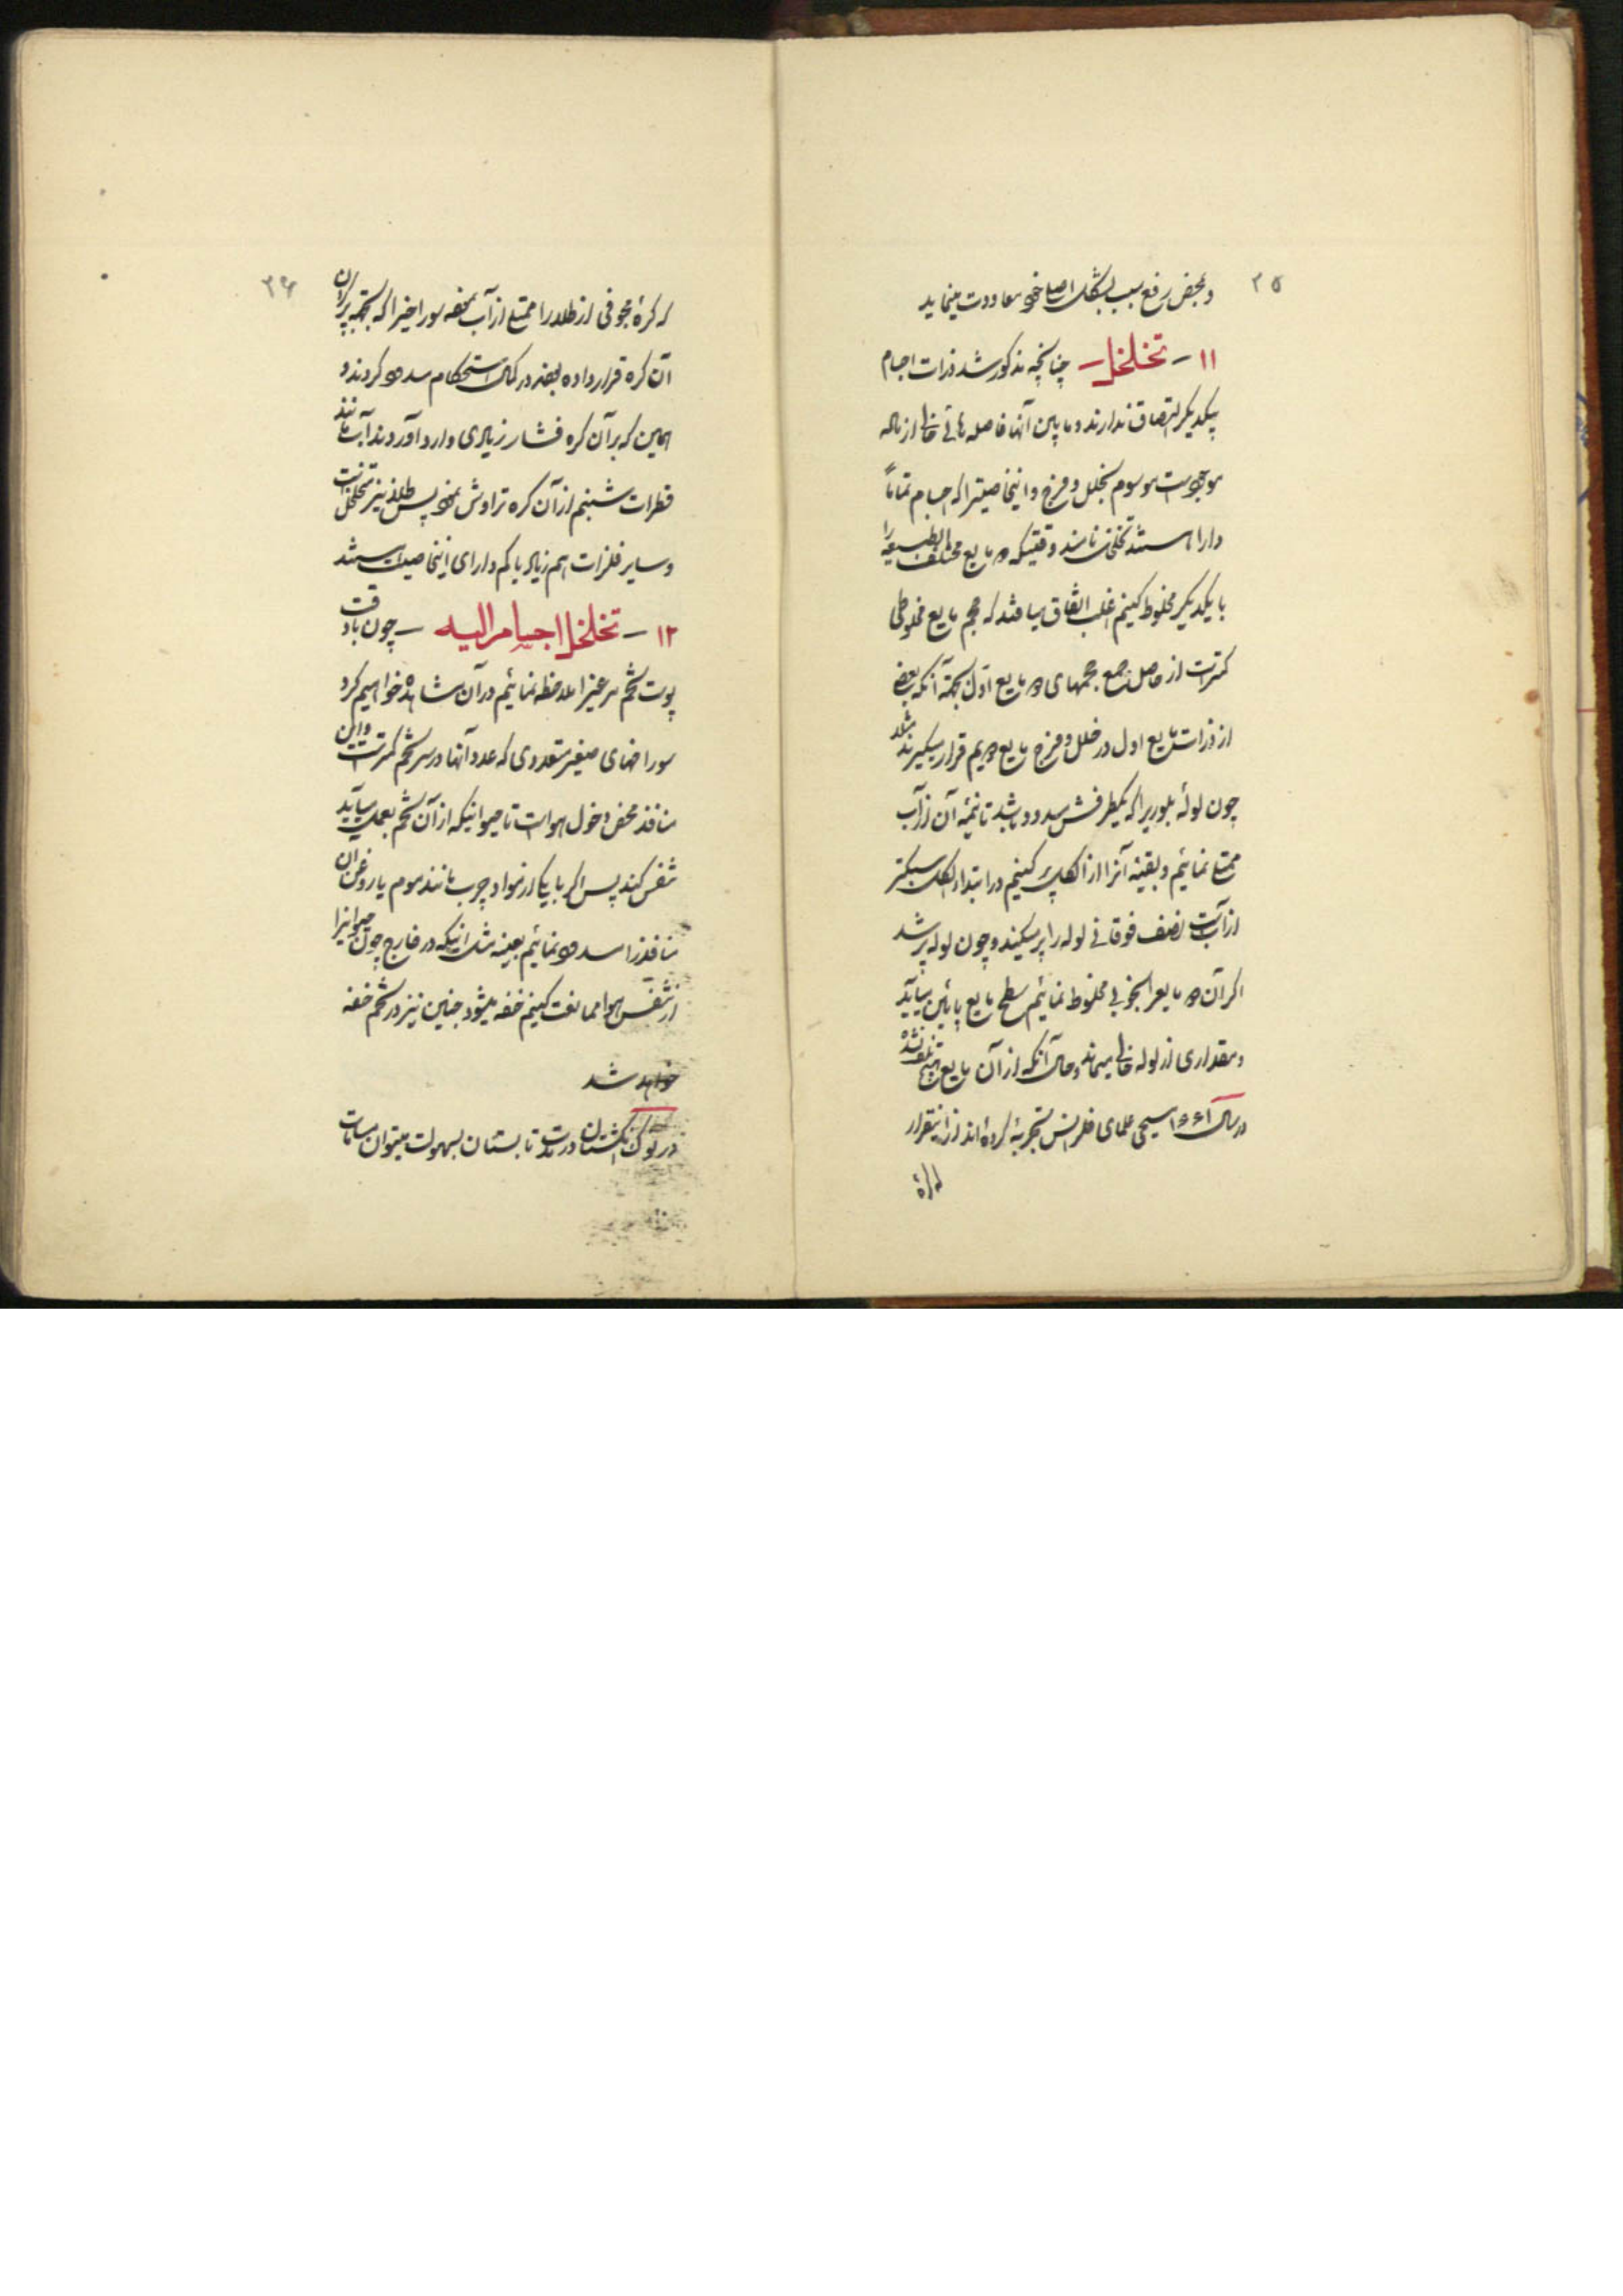 ۲۵
و بمحض رفع سبب بشکل اصلی خود معاودت مینماید
۱۱ - تخلخل - چنانچه مذکور شد ذرات اجسام
بیکدیگر التصاق ندارند و مابین آنها فاصله هائی خالی از ماده
موجود است موسوم بخلل و فرج و اینخاصیترا که اجسام تماماً
دارا هستند تخلخل نامند وقتیکه دو مایع مختلف الطبیعه را
با یکدیگر مخلوط کنیم اغلب اتفاق میافتد که حجم مایع مخلوطی
کمتر است از حاصل جمع حجمهای دو مایع اول بجهة آنکه بعضی
از ذرات مایع اول در خلل و فرج مایع دویم قرار میگیرند مثلا
چون لولهٔ بلوریرا که یکطرفش مسدود باشد تا نیمهٔ آن از آب
ممتلی نمائیم و بقیهٔ آنرا از الکل پر کنیم در ابتدا الکل سبکتر
از آبست نصف فوقانی لوله را پر میکند و چون لوله پر شد
اگر آن دو مایعرا بخوبی مخلوط نمائیم سطح مایع پائین میآید
و مقداری از لوله خالی میماند و حال آنکه از آن مایع هیچ تلف نشده
در سال ۱۶۶۱ مسیحی علمای فلرانس تجربهٔ کرده اند از اینقرار
که کرهٔ
۲۶
که کرهٔ مجوفی از طلا را ممتلی از آب نموده سوراخیرا که بجهة پر کردن
آن کره قرار داده بودند در کمال استحکام مسدود کردند و
همین که بر آن کره فشار زیادی وارد آوردند آب مانند
قطرات شبنم از آن کره تراوش نمود پس طلا نیز متخلخل است
و سایر فلزات هم زیاد یا کم دارای اینخاصیت هستند
۱۲ - تخلخل اجسام الیه - چون با دقت
پوست تخم مرغیرا ملاحظه نمائیم در آن مشاهده خواهیم کرد
سوراخهای صغیر متعددی که عدد آنها در سر تخم کمتر است و این
منافذ محض دخول هواست تا حیوانیکه از آن تخم بعمل میآید
تنفس کند پس اگر با یکی از مواد چرب مانند موم یا روغن آن
منافذرا مسدود نمائیم بعینه مثل اینکه در خارج چون حیوانیرا
از تنفس هوا ممانعت کنیم خفه میشود چنین نیز در تخم خفه
خواهد شد
در نوک انگشتان دست در تابستان بسهولت میتوان مسامات